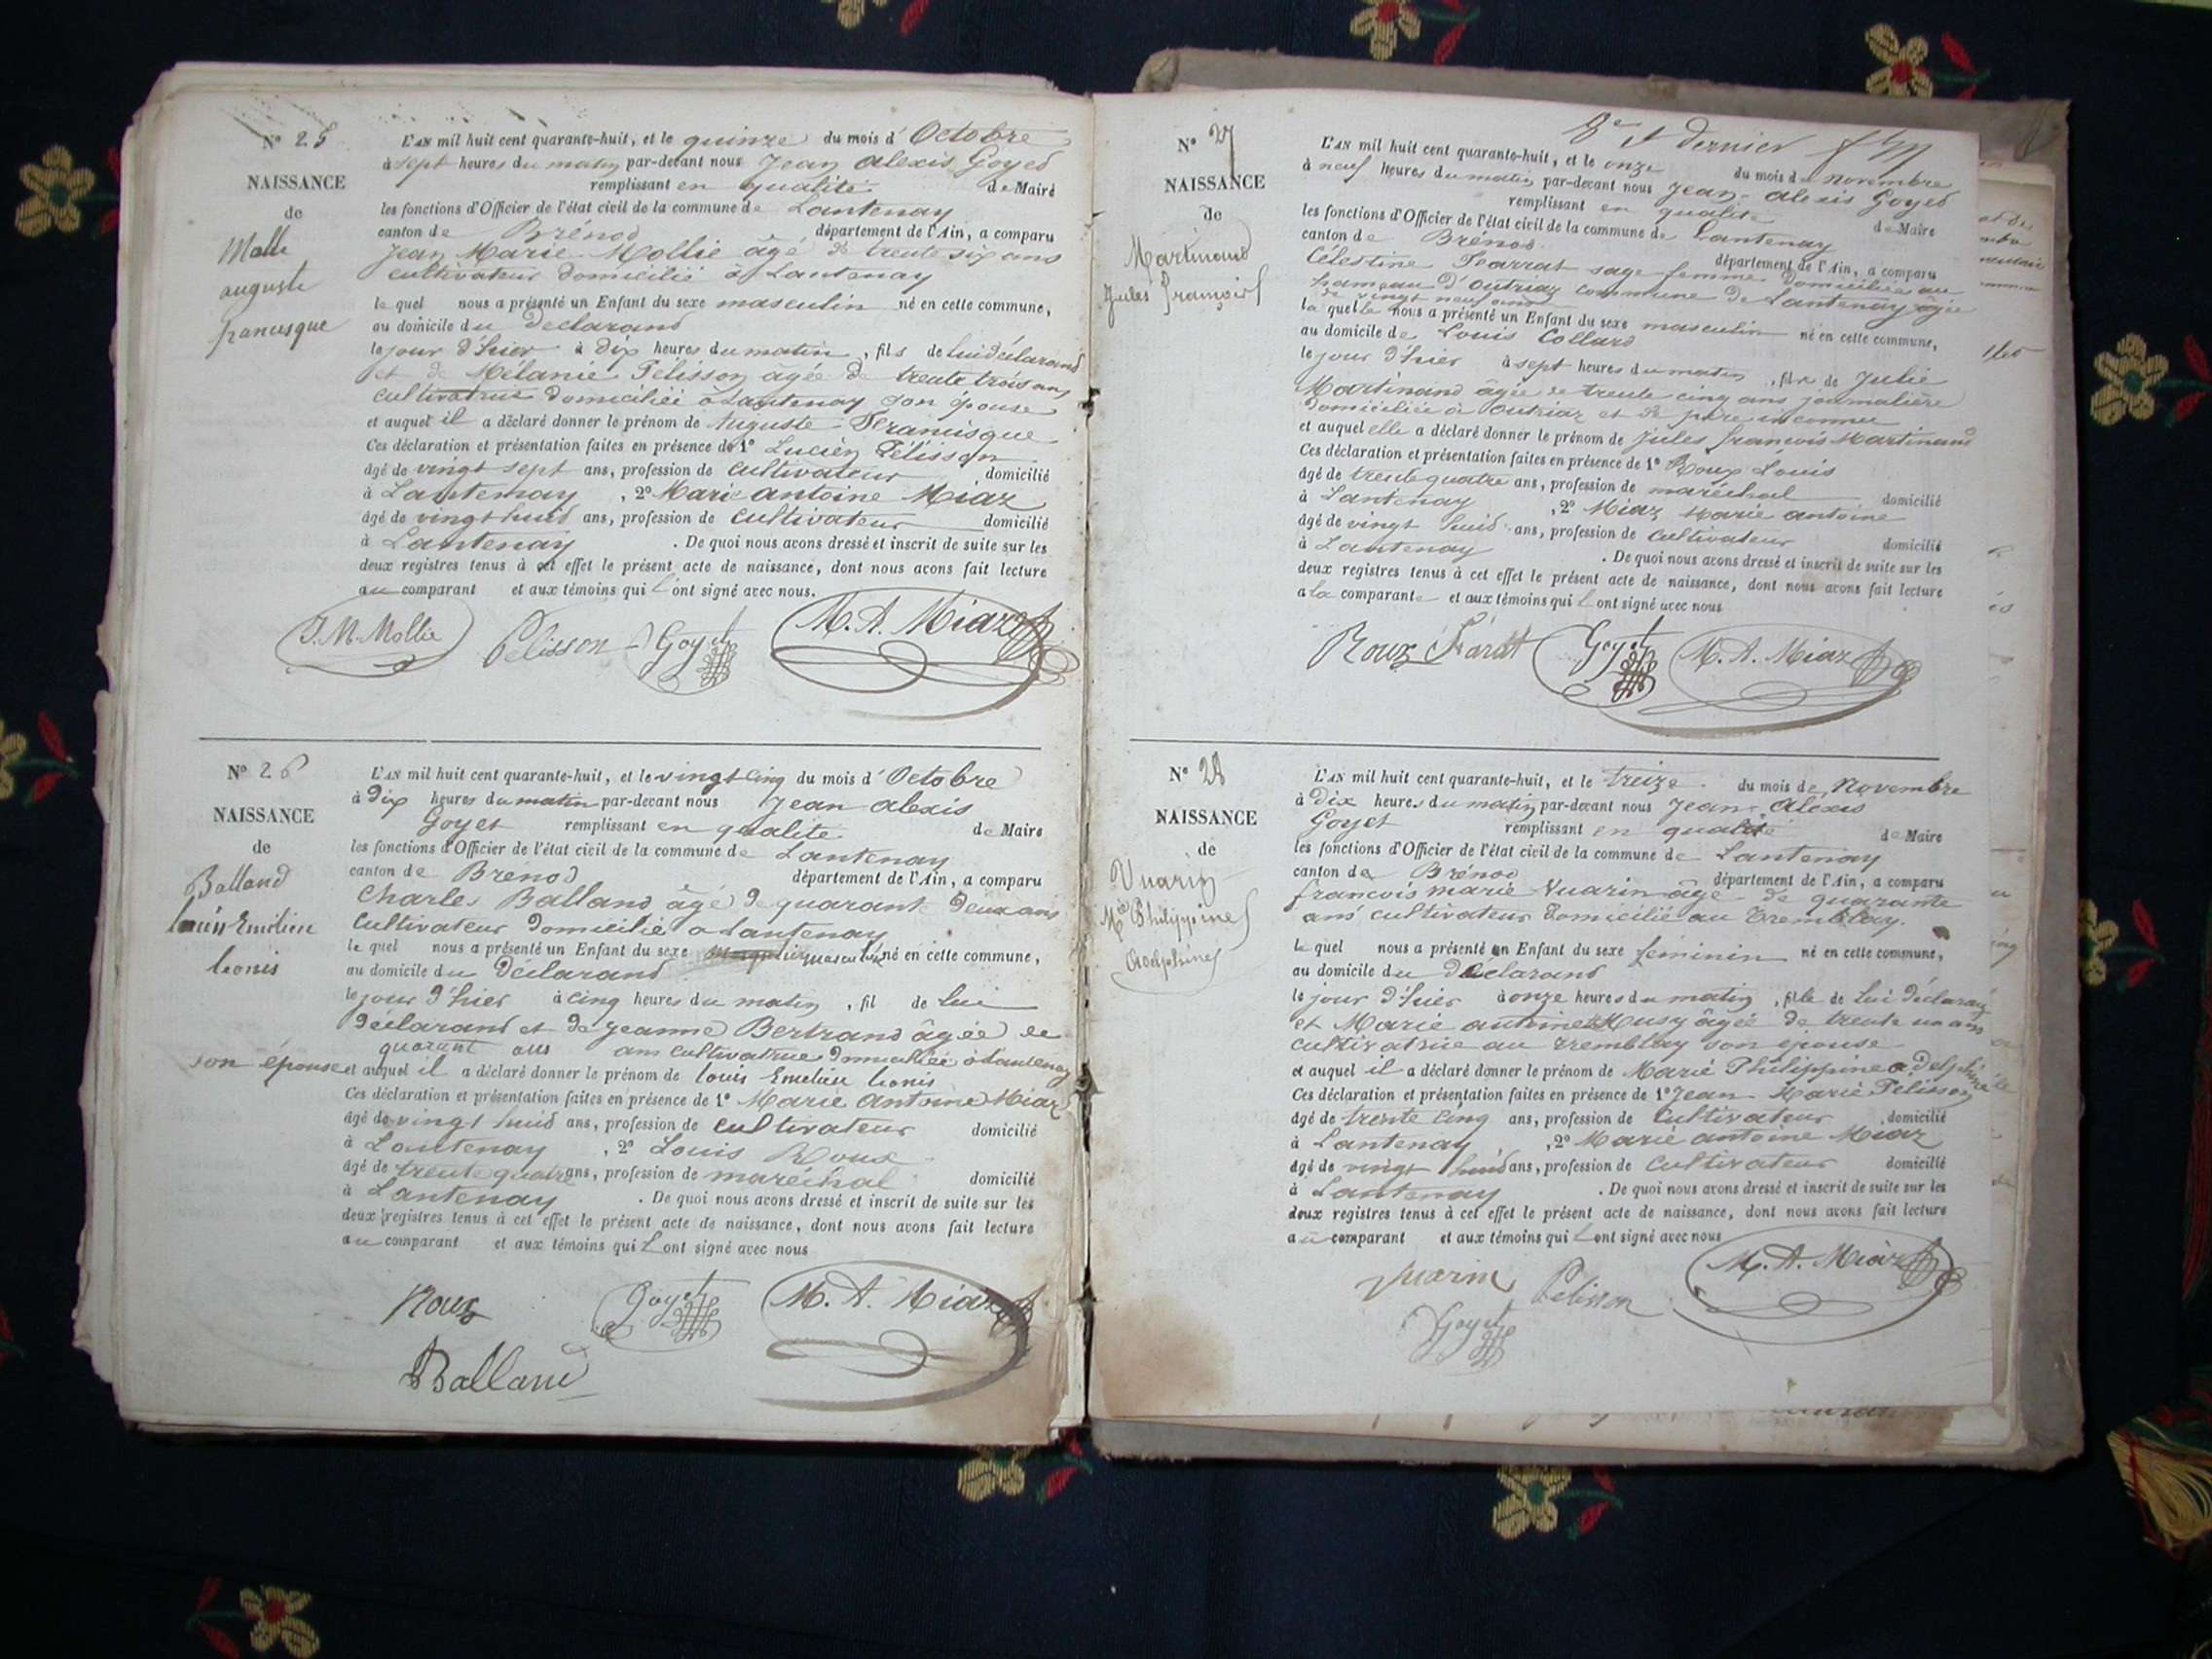 N° 25
NAISSANCE
de
Molle
auguste
francisque
L'AN mil huit cent quarante-huit, et le quinze du mois d'Octobre
à sept heures du matin par-devant nous Jean alexis Goyed
remplissant en qualité de Maire
les fonctions d'Officier de l'état civil de la commune de Lantenay
canton de Brénod département de l'Ain, a comparu
Jean Marie Mollie âgé de trente six ans
cultivateur domicilié à Lantenay
le quel nous a présenté un Enfant du sexe masculin né en cette commune,
au domicile du declarand
le jour d'hier à dix heures du matin, fils de lui déclarand
et de Mélanie Pélisson âgée de trente trois ans
cultivatrice domiciliée à Lantenay son épouse
et auquel il a déclaré donner le prénom de Auguste Francisque
Ces déclaration et présentation faites en présence de 1° Lucien Pélisson
âgé de vingt sept ans, profession de cultivateur domicilié
à Lantenay, 2° Marie antoine Miaz
âgé de vingt huid ans, profession de cultivateur domicilié
à Lantenay. De quoi nous avons dressé et inscrit de suite sur les
deux registres tenus à cet effet le présent acte de naissance, dont nous avons fait lecture
au comparant et aux témoins qui l'ont signé avec nous.
J. M. Mollie Pelisson Goyet M. A. Miaz
N° 26
NAISSANCE
de
Balland
louis Emilien
leonis
L'AN mil huit cent quarante-huit, et le vingt cinq du mois d'Octobre
à dix heures du matin par-devant nous Jean alexis
Goyet remplissant en qualité de Maire
les fonctions d'Officier de l'état civil de la commune de Lantenay
canton de Brénod département de l'Ain, a comparu
Charles Balland âgé de quarante deux ans
cultivateur domicilié a Lantenay
le quel nous a présenté un Enfant du sexe masculin né en cette commune,
au domicile du déclarand
le jour d'hier à cinq heures du matin, fil de lui
déclarand et de jeanne Bertrand âgée de
quarant ans cultivatrice domiciliée à Lantenay
son épouse et auquel il a déclaré donner le prénom de louis Emelien leonis
Ces déclaration et présentation faites en présence de 1° Marie Antoine Miaz
âgé de vingt huid ans, profession de cultivateur domicilié
à Lantenay, 2° Louis Roux
âgé de trente quatre ans, profession de maréchal domicilié
à Lantenay. De quoi nous avons dressé et inscrit de suite sur les
deux registres tenus à cet effet le présent acte de naissance, dont nous avons fait lecture
au comparant et aux témoins qui l ont signé avec nous
Roux Goyet M. A. Miaz
Balland
8e et dernier
N° 27
NAISSANCE
de
Martinand
Jules françois
L'AN mil huit cent quarante-huit, et le onze du mois de novembre
à neuf heures du matin par-devant nous Jean alexis Goyed
remplissant en qualité de Maire
les fonctions d'Officier de l'état civil de la commune de Lantenay
canton de Brénod. département de l'Ain, a comparu
Célestine Farrat sage femme domiciliée au
hameau d'outriaz commune de Lantenay âgée
de vingt neuf ans
la quelle nous a présenté un Enfant du sexe masculin né en cette commune,
au domicile de Louis Collard
le jour d'hier à sept heures du matin, fils de Julie
Martinand âgée de trente cinq ans journalière
domiciliée à outriaz et de père inconnu
et auquel elle a déclaré donner le prénom de Jules françois Martinand
Ces déclaration et présentation faites en présence de 1° Roux Louis
âgé de trente quatre ans, profession de maréchal domicilié
à Lantenay, 2° Miaz Marie antoine
âgé de vingt huid ans, profession de cultivateur domicilié
à Lantenay. De quoi nous avons dressé et inscrit de suite sur les
deux registres tenus à cet effet le présent acte de naissance, dont nous avons fait lecture
a la comparante et aux témoins qui l ont signé avec nous
Roux Farat Goyet M. A. Miaz
N° 28
NAISSANCE
de
Vuarin
Mie Philippine
adelphine
L'AN mil huit cent quarante-huit, et le treize du mois de Novembre
à dix heures du matin par-devant nous Jean Alexis
Goyet remplissant en qualité de Maire
les fonctions d'Officier de l'état civil de la commune de Lantenay
canton de Brénod département de l'Ain, a comparu
françois marie Vuarin âgé de quarante
ans cultivateur domicilié au Tremblay.
le quel nous a présenté un Enfant du sexe féminin né en cette commune,
au domicile du declarand
le jour d'hier à onze heures du matin, fille de lui déclarand
et Marie antoinette Musy âgée de trente un ans
cultivatrice au tremblay son epouse
et auquel il a déclaré donner le prénom de Marie Philippine adelphine
Ces déclaration et présentation faites en présence de 1° Jean Marie Pelisson
âgé de trente cinq ans, profession de Cultivateur domicilié
à Lantenay, 2° Marie antoine Miaz
âgé de vingt huid ans, profession de cultivateur domicilié
à Lantenay. De quoi nous avons dressé et inscrit de suite sur les
deux registres tenus à cet effet le présent acte de naissance, dont nous avons fait lecture
au comparant et aux témoins qui l ont signé avec nous
Vuarin Pelisson M. A. Miaz
Goyet